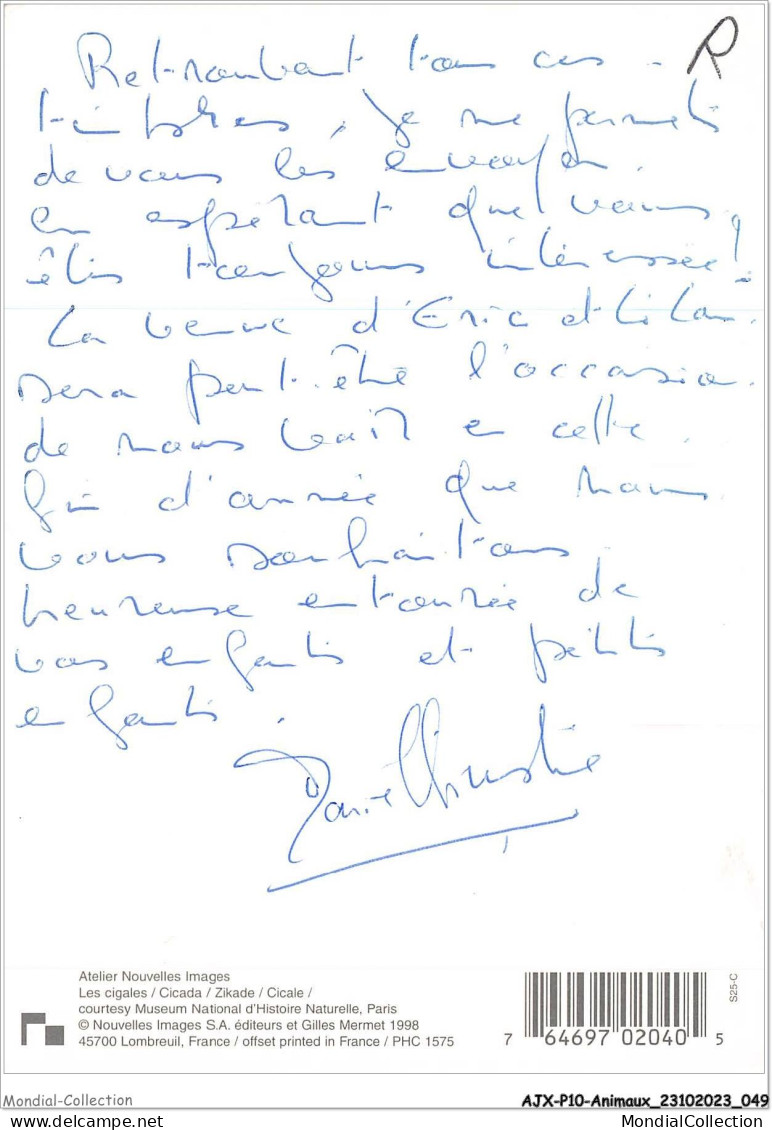 R
Retrouvant tous ces
timbres, je me permets
de vous les envoyer
en espérant que vous
êtes toujours intéressée !
La venue d'Eric et
sera peut-être l'occasion
de nous voir en cette
fin d'année que nous
vous souhaitons
heureuse entourée de
vos enfants et petits
enfants.
Atelier Nouvelles Images
Les cigales / Cicada / Zikade / Cicale /
courtesy Museum National d'Histoire Naturelle, Paris
© Nouvelles Images S.A. éditeurs et Gilles Mermet 1998
45700 Lombreuil, France / offset printed in France / PHC 1575
7 64697 02040 5
S25-C
Mondial-Collection
AJX-P10-Animaux_23102023_049
MondialCollection